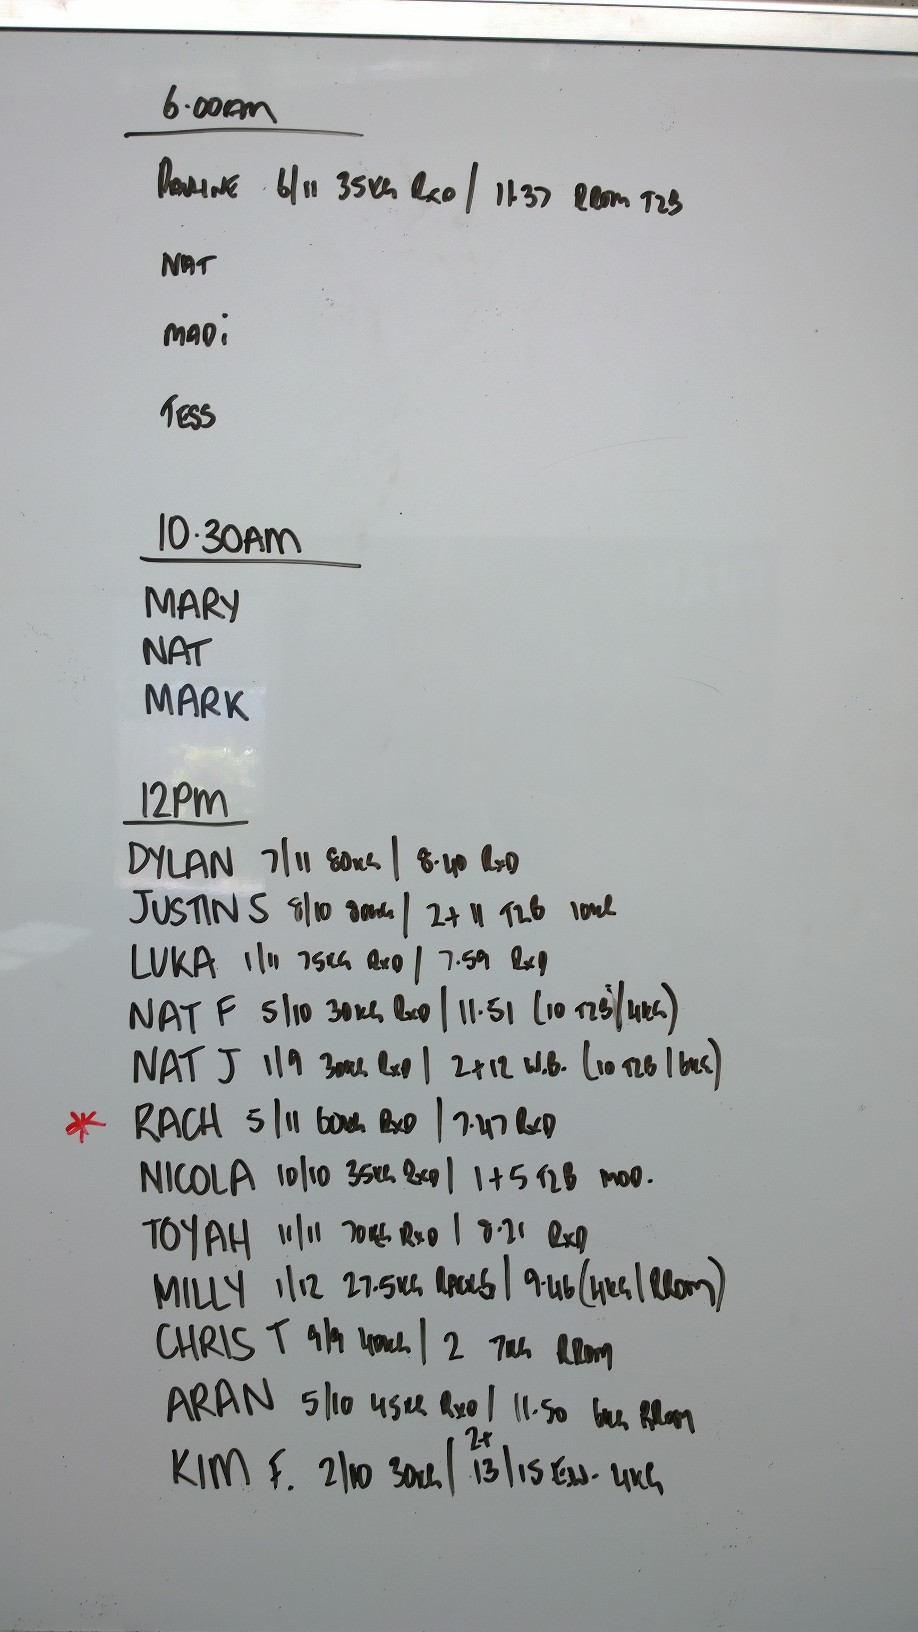 6.00AM
PAULINE 6/11 35KG RXD / 11.37 RROM T2B
NAT
MADi
TESS
10.30AM
MARY
NAT
MARK
12PM
DYLAN 7/11 80KG | 8.40 RXD
JUSTIN S 8/10 80KG | 2+11 T2B 10KG
LUKA 1/11 75KG RXD | 7.59 RXD
NAT F 5/10 30KG RXD | 11.51 (10 T2B/4KG)
NAT J 1/9 30KG RXD | 2+12 W.B. (10 T2B/6KG)
* RACH 5/11 60KG RXD | 7.47 RXD
NICOLA 10/10 35KG RXD | 1+5 T2B MOD.
TOYAH 11/11 70KG RXD | 8.21 RXD
MILLY 1/12 27.5KG RACKS | 9.46 (4KG/RROM)
CHRIS T 9/9 40KG | 2 7KG RROM
ARAN 5/10 45KG RXD | 11.50 6KG RROM
KIM F. 2/10 30KG | 2+ 13/15 4KG